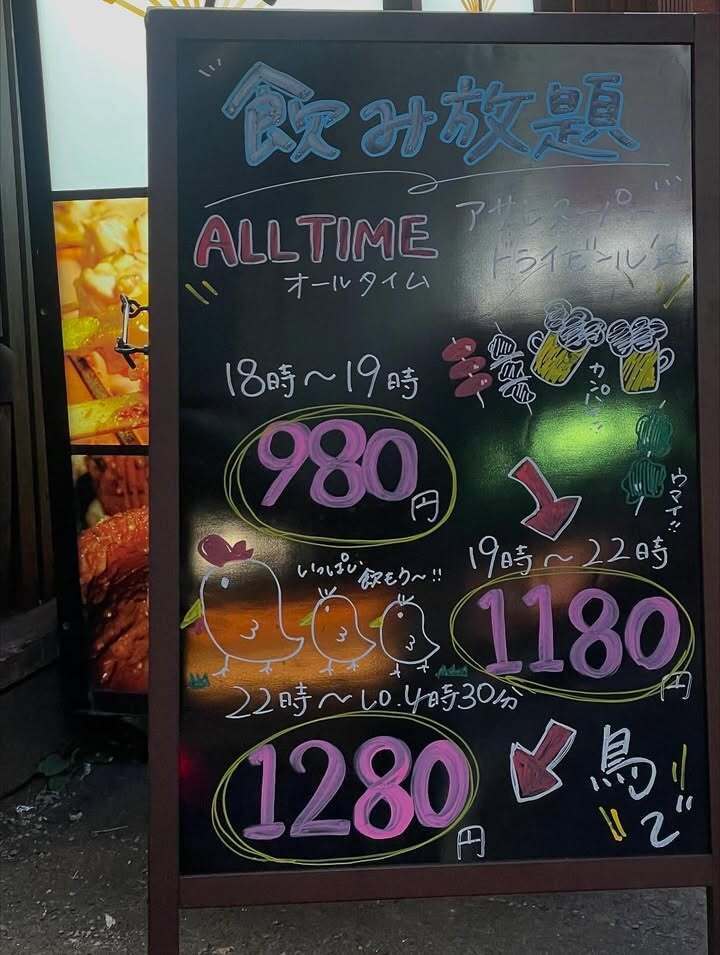 飲み放題
ALLTIME
オールタイム
アサヒスーパー
ドライビール
18時～19時
カンパイ!!
980円
ウマイ!!
19時～22時
いっぱい
飲もう～!!
1180円
22時～L.O.4時30分
1280円